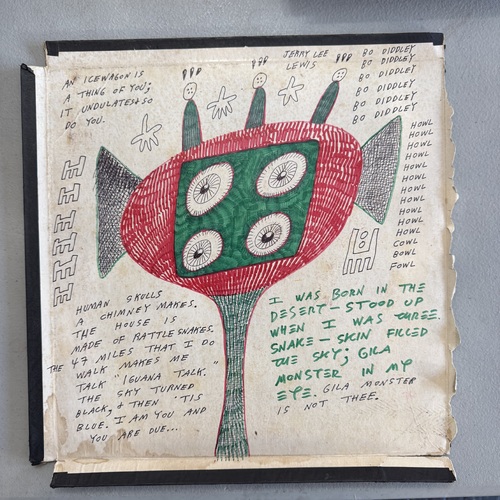 AN ICEWAGON IS
A THING OF YOU;
IT UNDULATES & SO
DO YOU.
JERRY LEE
LEWIS
BO DIDDLEY
BO DIDDLEY
BO DIDDLEY
BO DIDDLEY
BO DIDDLEY
BO DIDDLEY
HOWL
HOWL
HOWL
HOWL
HOWL
HOWL
HOWL
HOWL
HOWL
HOWL
COWL
BOWL
FOWL
HUMAN SKULLS
A CHIMNEY MAKES.
THE HOUSE IS
MADE OF RATTLESNAKES.
47 MILES THAT I DO
THE WALK MAKES ME
TALK "IGUANA TALK."
THE SKY TURNED
BLACK, & THEN 'TIS
BLUE. I AM YOU AND
YOU ARE DUE...
I WAS BORN IN THE
DESERT - STOOD UP
WHEN I WAS THREE.
SNAKE - SKIN FILLED
THE SKY; GILA
MONSTER IN MY
EYE. GILA MONSTER
IS NOT THEE.